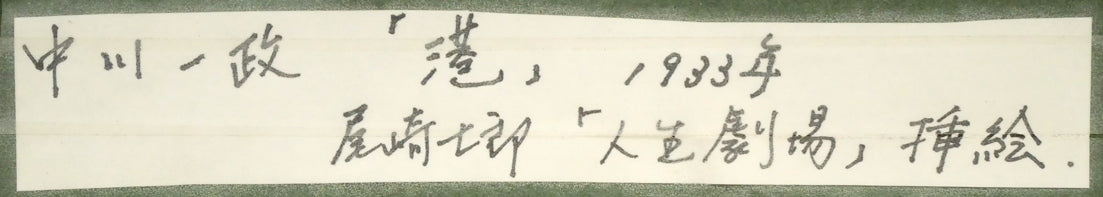 中川一政 「港」 1933年
尾崎士郎 「人生劇場」 挿絵.